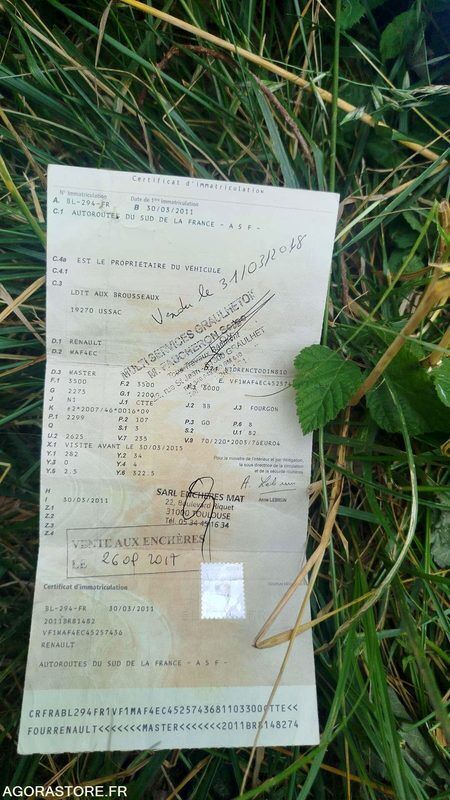 Certificat d'immatriculation
N° Immatriculation Date de 1ère immatriculation
A. BL-294-FR B 30/03/2011
C.1 AUTOROUTES DU SUD DE LA FRANCE - A S F -
C.4a EST LE PROPRIETAIRE DU VEHICULE
C.4.1
C.3
LDIT AUX BROUSSEAUX
19270 USSAC
Vendu le 31/03/2018
MULTISERVICES GRAULHETOIS
D.1 RENAULT
D.2 MAF4EC
D.3 MASTER
F.1 3500 F.2 3500
G 2275 G.1 2200
J N1 J.1 CTTE J.2 BB J.3 FOURGON
K e2*2007/46*0016*09
P.1 2299 P.2 107 P.3 GO P.6 8
Q S.1 3 U.1 82
U.2 2625 V.7 235 V.9 70/220*2005/76EURO4
X.1 VISITE AVANT LE 30/03/2015
Y.1 282 Y.2 34
Y.3 0 Y.4 4
Y.5 2.5 Y.6 322.5
Pour le ministre de l'intérieur et par délégation,
la sous directrice de la circulation
et de la sécurité routières
H
I 30/03/2011
Z.1
Z.2
Z.3
Z.4
SARL ENCHERES MAT
22, Boulevard Riquet
31000 TOULOUSE
Tél. 05 34 45 16 34
VENTE AUX ENCHÈRES
LE
Certificat d'immatriculation
BL-294-FR 30/03/2011
VF1MAF4EC45257436
RENAULT
AUTOROUTES DU SUD DE LA FRANCE - A S F -
CRFRABL294FR1VF1MAF4EC4525743681103300CTTE<<
FOURRENAULT<<<<<<<MASTER<<<<<<<2011BR8148274
AGORASTORE.FR